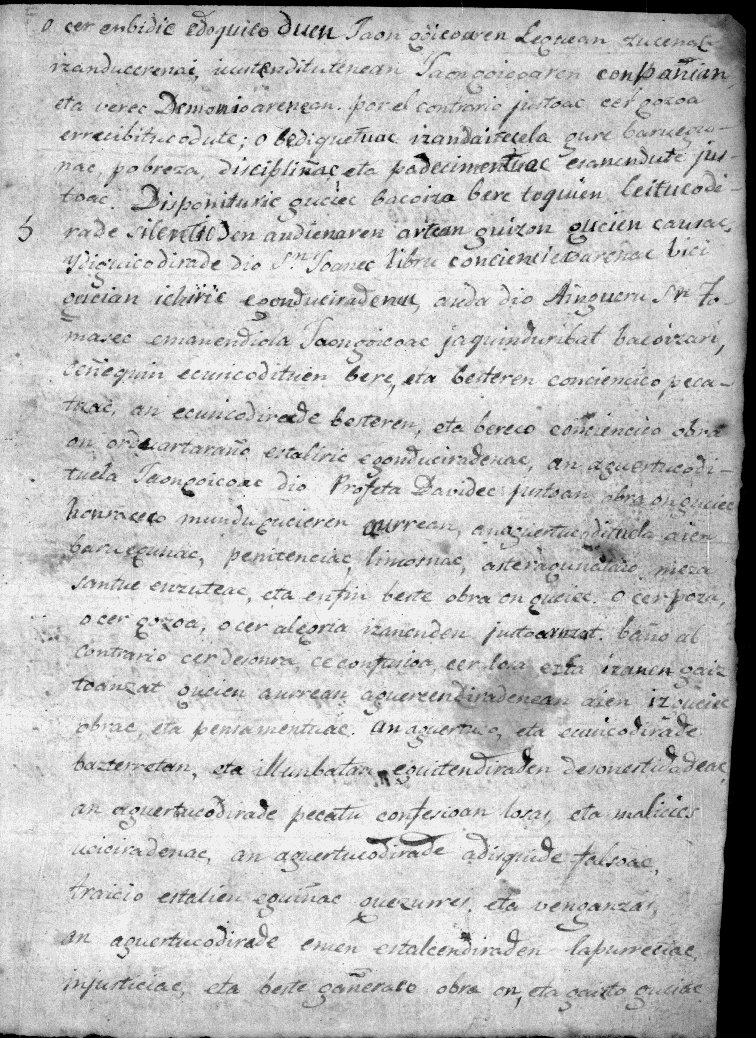 o cer enbidie edoquico duen Jaon goicoaren Leguean zucenac
izanducerenai, icustendutenean Jaongoicoaren conpañian,
eta verec Demonioarenean. por el contrario justoac cer gozoa
errecibitucodute; o bediquetuac izandaitecela gure baruegu-
nac, pobreza, disciplinac, eta padecimentuac esanendute jus-
toac. Disponituric guciec bacoiza bere toquien leitucodi-
5 rade silentioDen andienaren artean guizon gucien causac,
ydiquicodirade dio Sn. Joanec libru concienciaarenac bici
gucian ichiric egonduciradenac, auda dio Aingueru Sto. To-
masec emanendiola Jaongoicoac jaquinduribat bacoizari,
ceñequin ecusicodituen bere, eta besteren conciencico peca-
tuac, an ecusicodirade besteren, eta bereco conciencico obra
on ordu artaraño estaliric egonduciradenac, an aguertucodi-
tuela Jaongoicoac dio Profeta Davidec justoan obra on guciec
honraceco mundu gucieren aurrean, an aguertucoditucla aien
baruegunac, penitenciac, limosnac, asteragunaldiac, meza
santue enzuteac, eta enfin beste obra on guciec. o cer poza,
o cer gozoa, o cer alegria izanenden justoanzat. baño al
contrario cer desonra, ce confusioa, cer loxa ezta izanen gaiz
toanzat gucien aurrean aguercendiradenean aien iz guciec
obrac, eta pensamentuac. an aguertuco, eta ecusicodirade
bazterretan, eta illunbatan eguitendiraden desonestidadeac,
an aguertucodirade pecatu confesioan losas, eta malicies
uciciradenac, an aguertucodirade adisquide falsoac,
traicio estalien eguinac guezurres, eta venganzas,
an aguertucodirade emen estalcendiraden lapurreciac,
injusticiac, eta beste gañeraco obra on, eta gaisto guciac